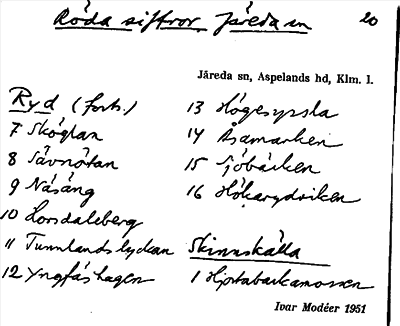 Röda siffror, Järeda sn 20
Järeda sn, Aspelands hd, Klm. l.
Ryd (forts.)
7 Sköglan
8 Sävnötan
9 Näsäng
10 Lorsdaleberg
11 Tunnlandslyckan
12 Yngfäshagen
13 Högesypsla
14 Åsamarken
15 Sjöbäcken
16 Hökarydsviken
Skinnskälla
1 Hjortabackamossen
Ivar Modéer 1951